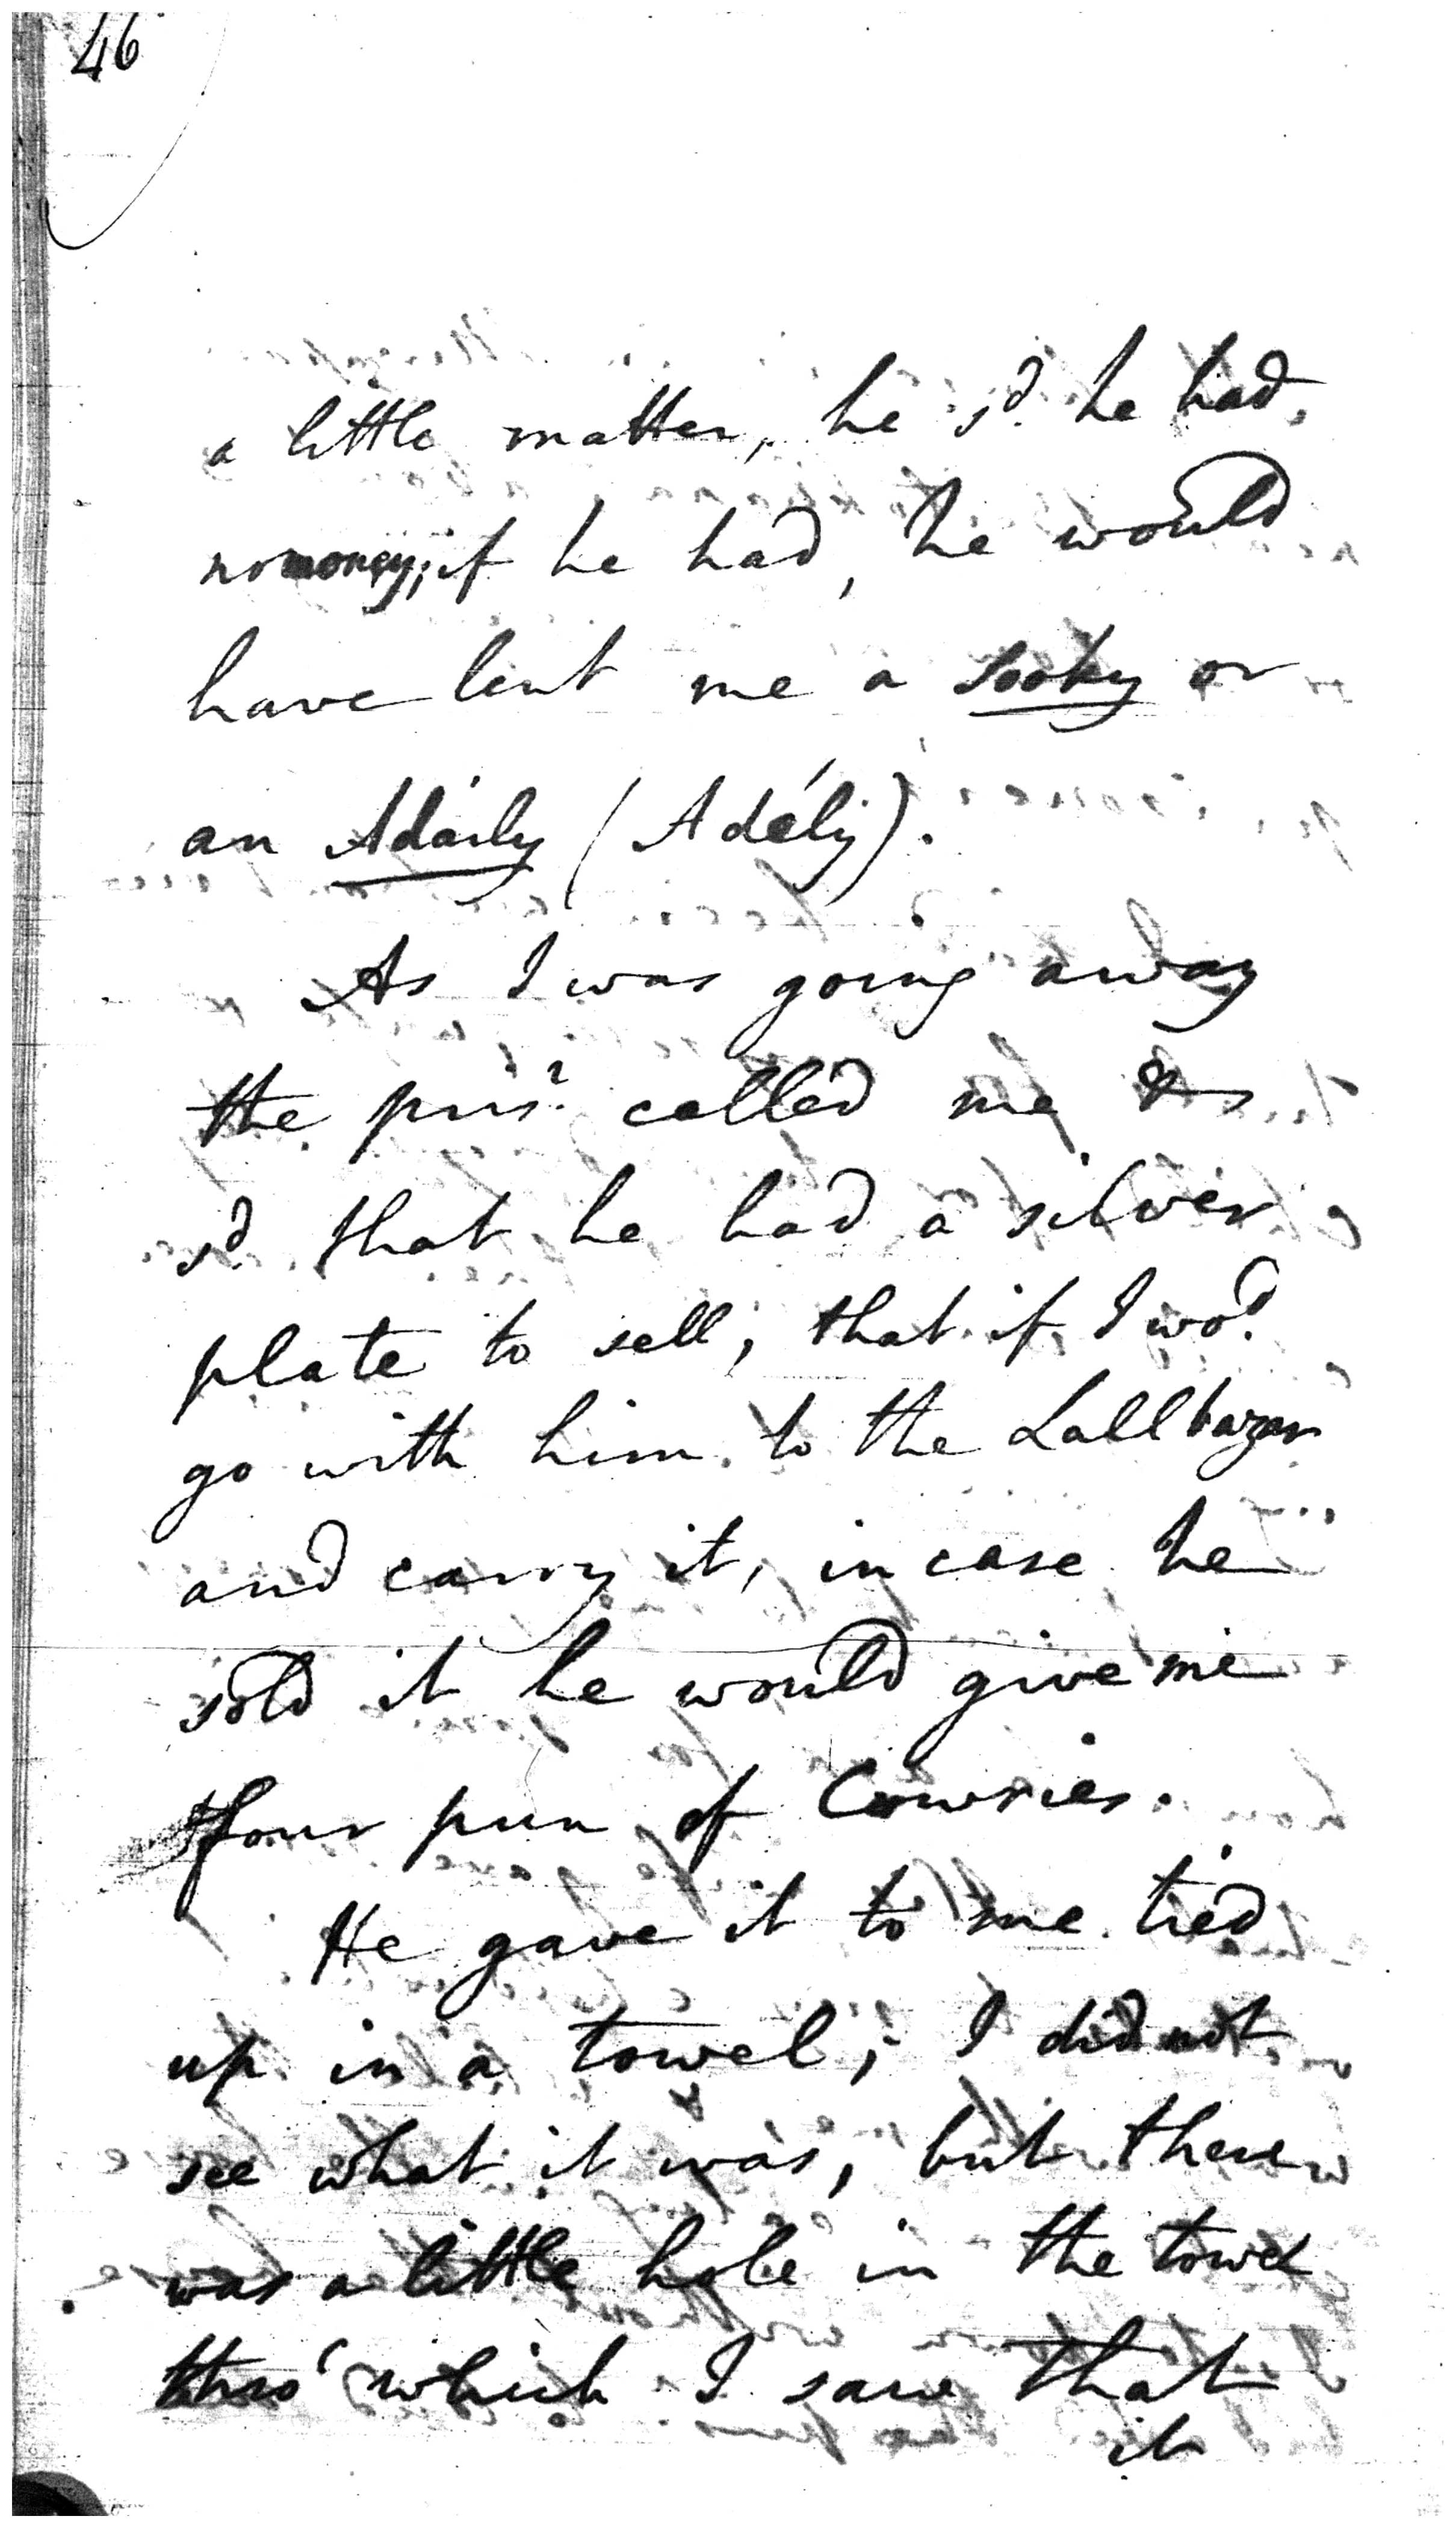 46
a little matter, he sd. he had
no money; if he had, he would
have lent me a Sooky or
an Adaily (Adély).
As I was going away
the prisr. called me &
sd. that he had a silver
plate to sell, that if I wod.
go with him to the Lallbazar
and carry it, in case he
sold it he would give me
four pun of Cowries.
He gave it to me tied
up in a towel; I did not
see what it was, but there
was a little hole in the towel
thro' which I saw that
it